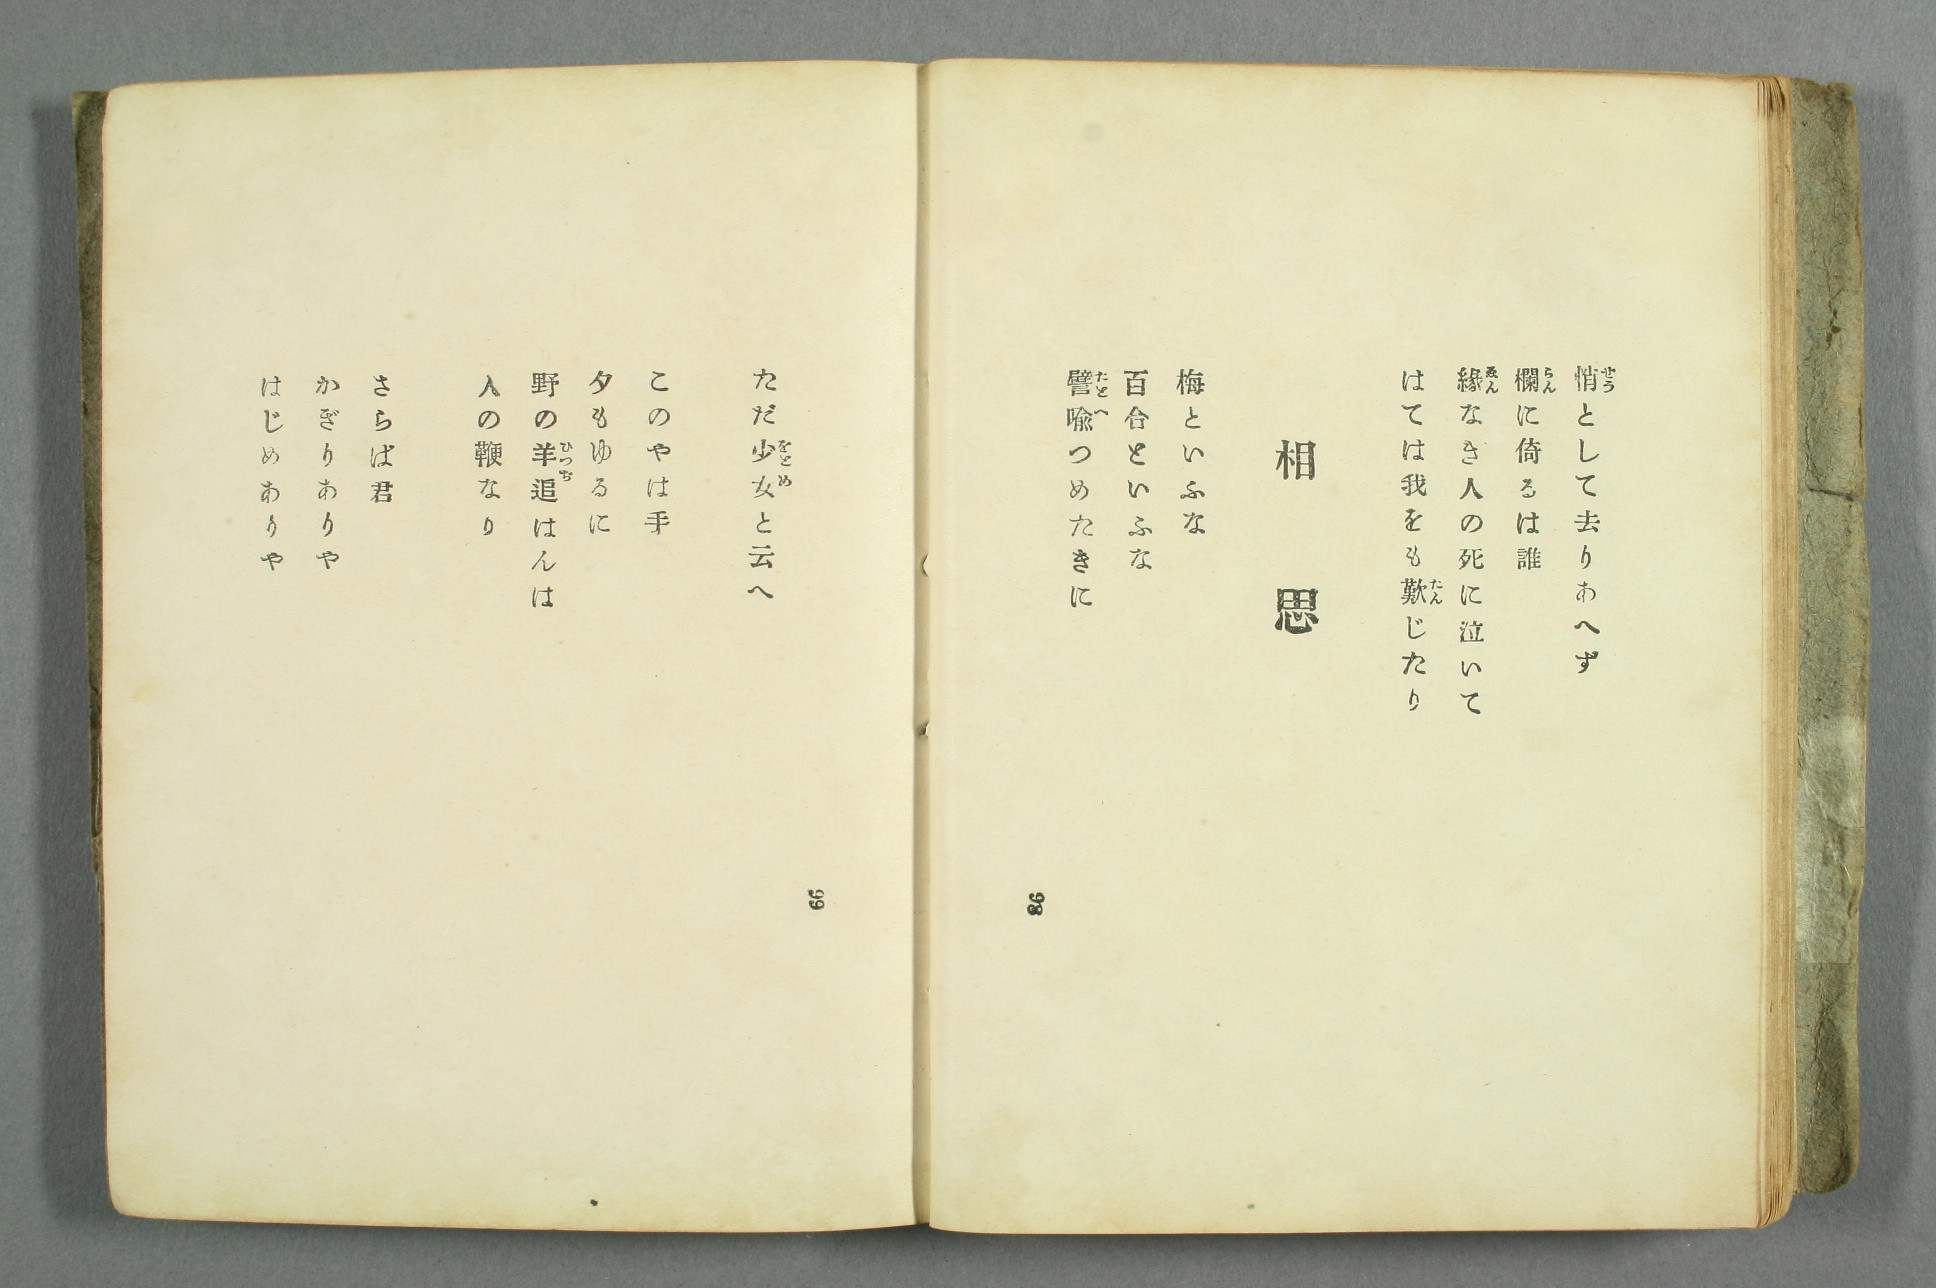 悄として去りあへず
欄に倚るは誰
緣なき人の死に泣いて
はては我をも歎じたり
相思
梅といふな
百合といふな
譬喩つめたきに
98
ただ少女と云へ
このやは手
夕もゆるに
野の羊追はんは
人の鞭なり
さらば君
かぎりありや
はじめありや
99